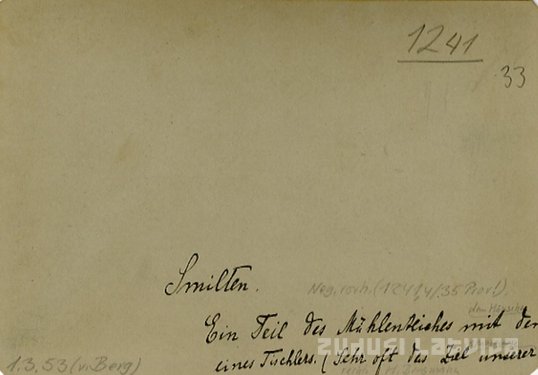 1241
33
Smilten.
Neg. vorh. (1241,4/35 Prov.)
Ein Teil des Mühlenteiches mit
eines Tischlers. (Sehr oft das Ziel unserer
zudusi Latvija
1.3.53 (v. Berg)